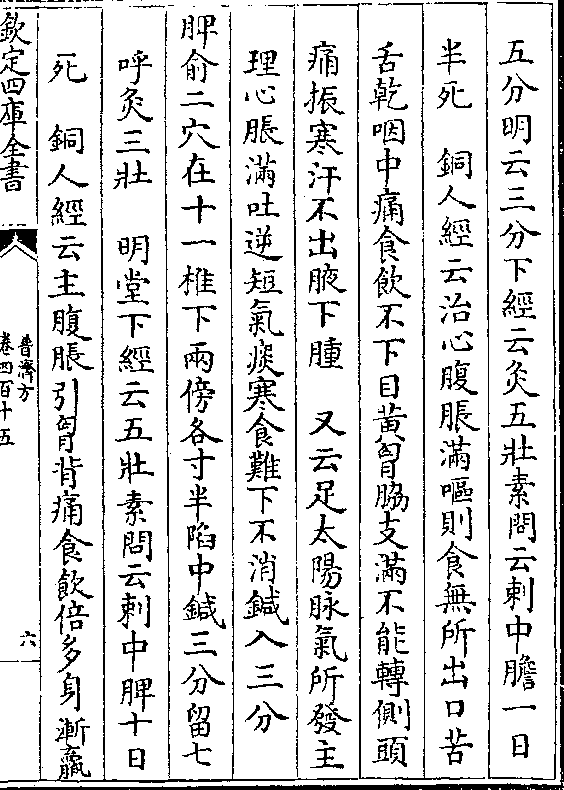 五分明云三分下經云灸五壯素問云刺中膽一日
半死　銅人經云治心腹脹滿嘔則食無所出口苦
舌乾咽中痛食飲不下目黃胷脇支滿不能轉側頭
痛振寒汗不出腋下腫　又云足太陽脉氣所發主
理心脹滿吐逆短氣痰寒食難下不消鍼入三分
脾俞二穴在十一椎下兩傍各寸半陷中鍼三分留七
呼灸三壯　明堂下經云五壯素問云刺中脾十日
死　銅人經云主腹脹引胷背痛食飲倍多身漸羸
欽定四庫全書
普濟方
卷四百十五
六